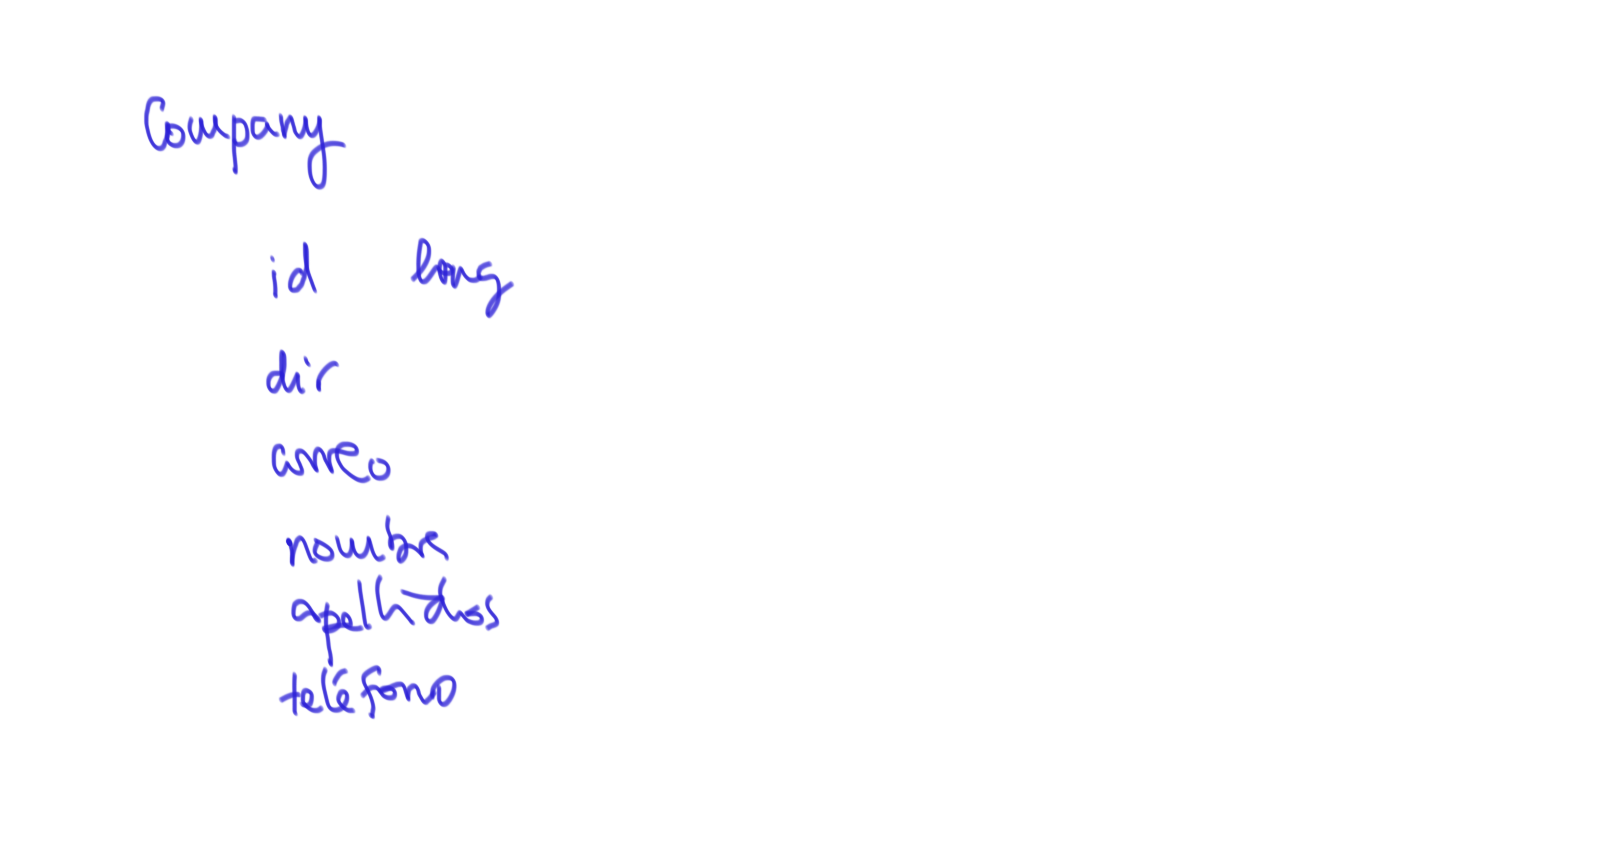 Company
id long
dir
correo
nombre
apellidos
teléfono